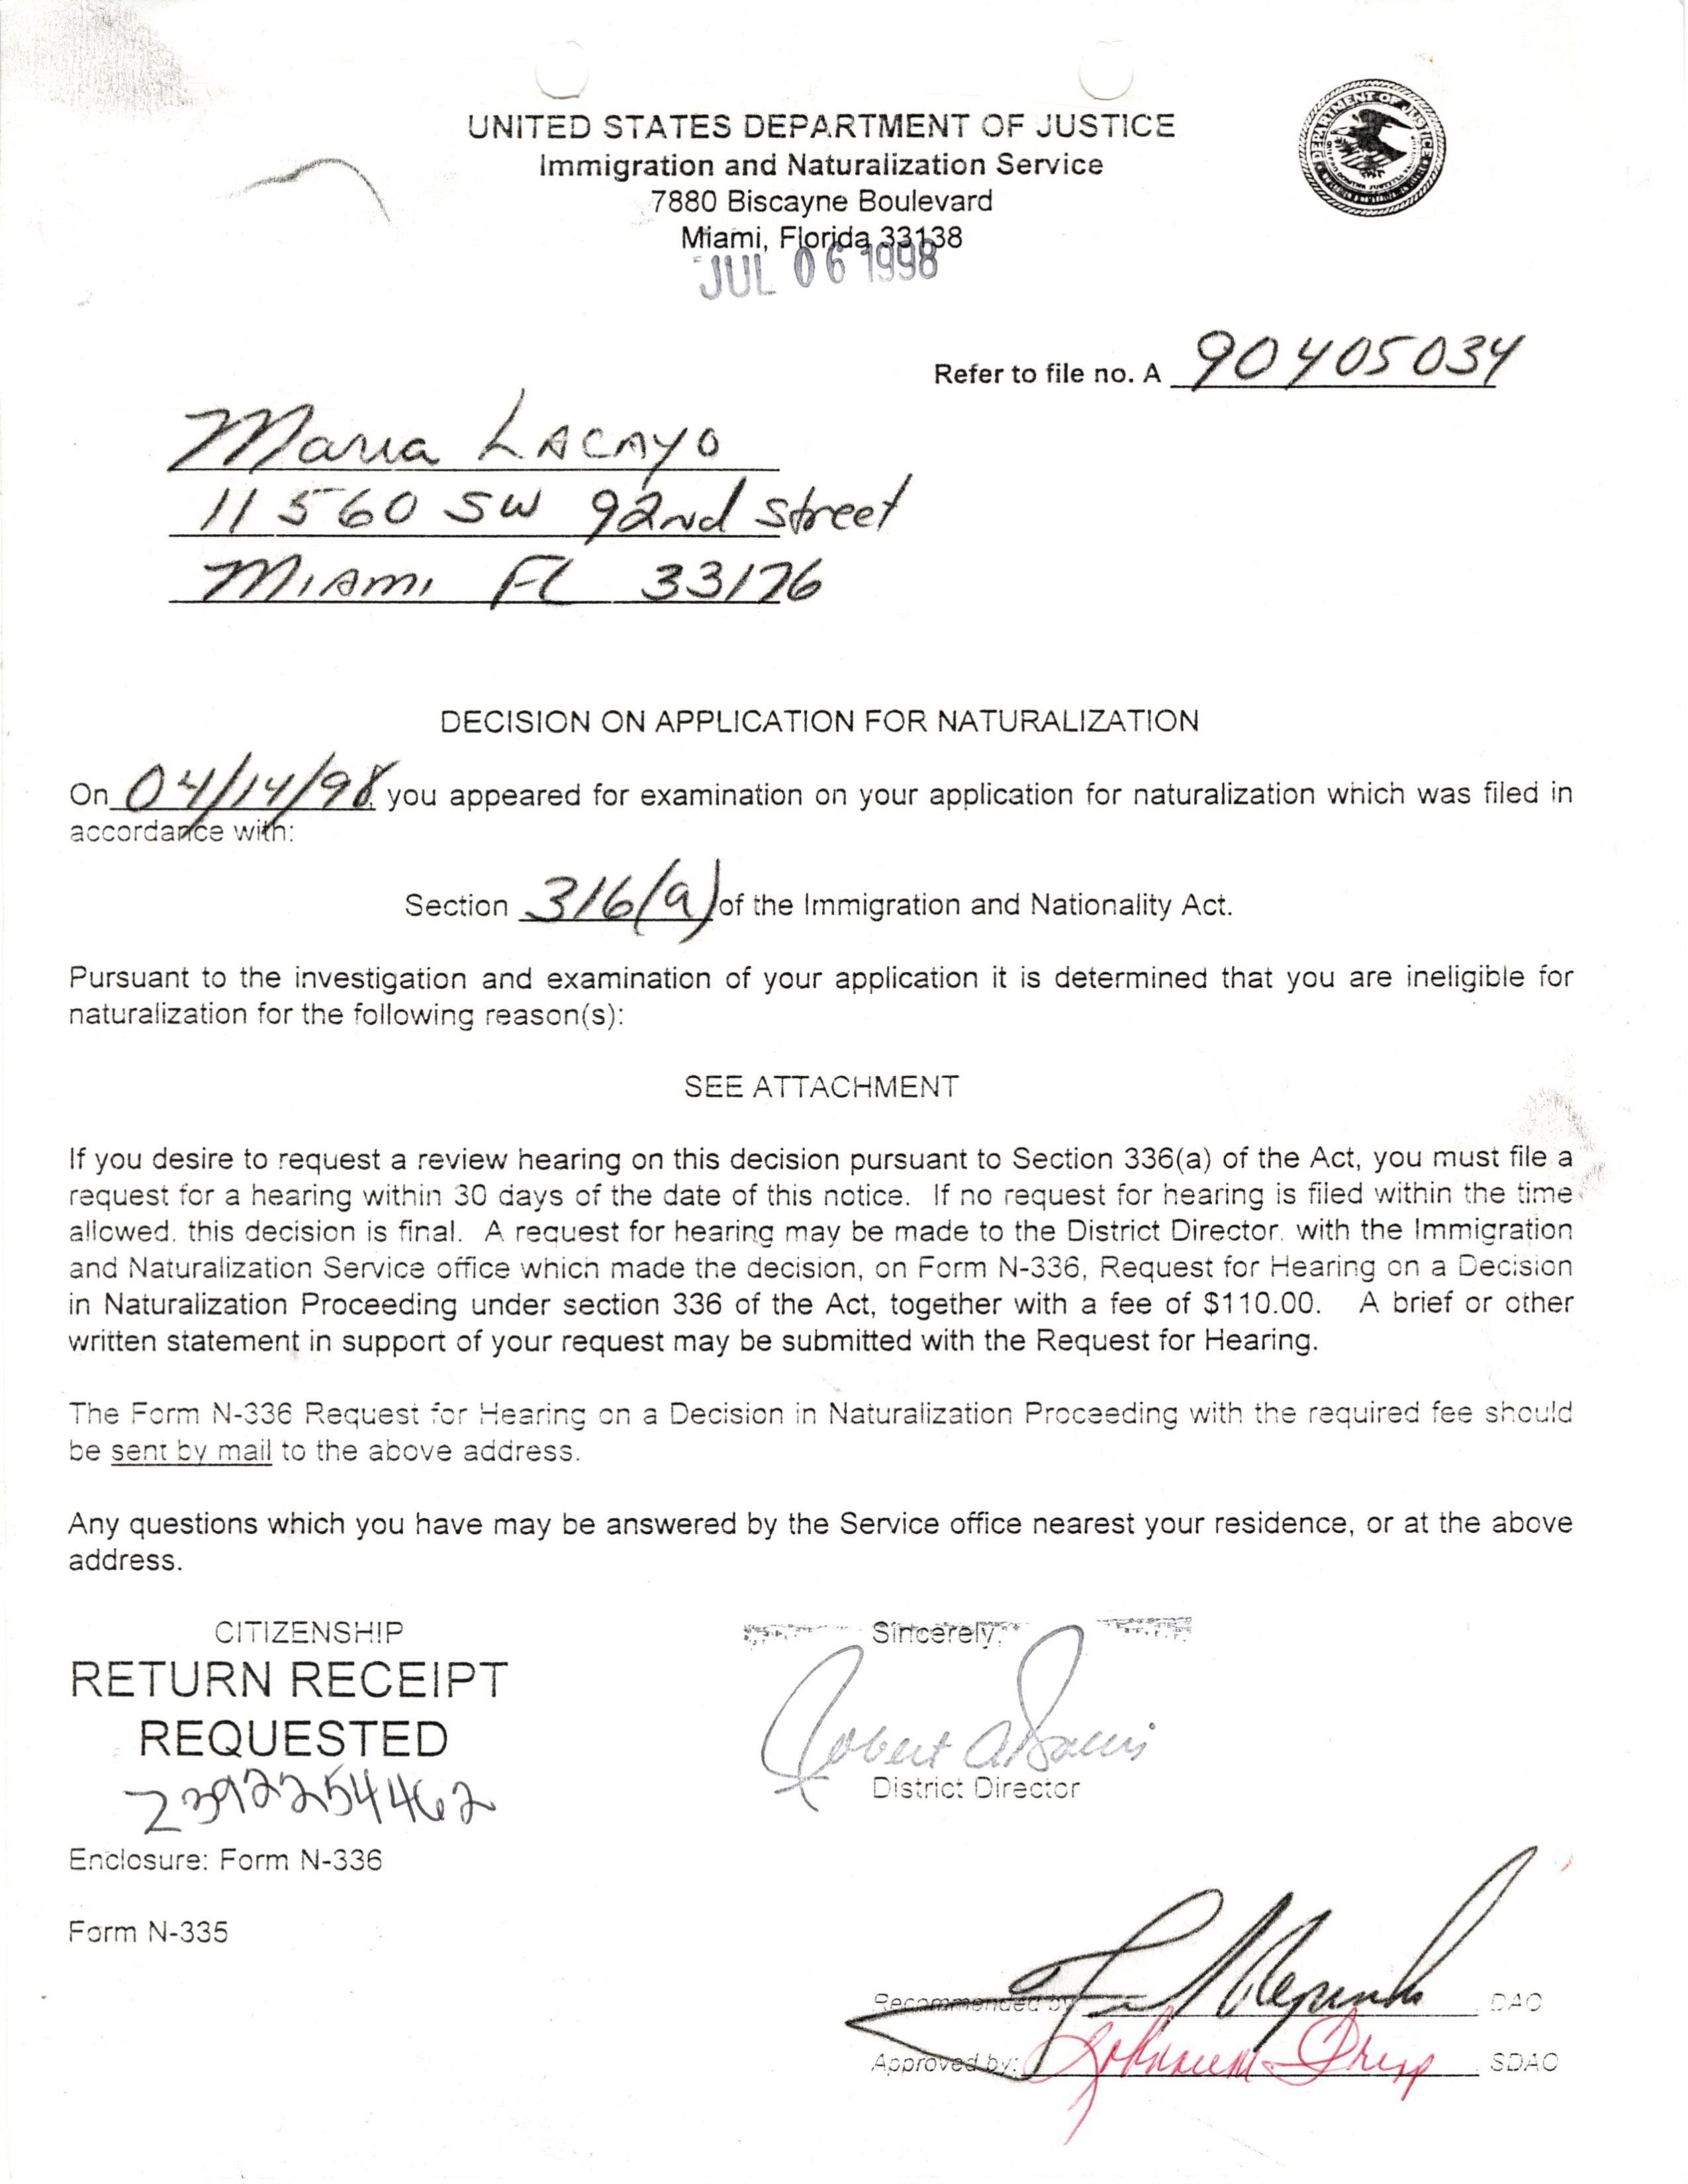 UNITED STATES DEPARTMENT OF JUSTICE
Immigration and Naturalization Service
7880 Biscayne Boulevard
Miami, Florida 33138
JUL 06 1998
Refer to file no. A 90405034
Maria LACAYO
11560 SW 92nd Street
Miami FL 33176
DECISION ON APPLICATION FOR NATURALIZATION
On 04/14/98 you appeared for examination on your application for naturalization which was filed in
accordance with:
Section 316(a) of the Immigration and Nationality Act.
Pursuant to the investigation and examination of your application it is determined that you are ineligible for
naturalization for the following reason(s):
SEE ATTACHMENT
If you desire to request a review hearing on this decision pursuant to Section 336(a) of the Act, you must file a
request for a hearing within 30 days of the date of this notice. If no request for hearing is filed within the time
allowed, this decision is final. A request for hearing may be made to the District Director, with the Immigration
and Naturalization Service office which made the decision, on Form N-336, Request for Hearing on a Decision
in Naturalization Proceeding under section 336 of the Act, together with a fee of $110.00. A brief or other
written statement in support of your request may be submitted with the Request for Hearing.
The Form N-336 Request for Hearing on a Decision in Naturalization Proceeding with the required fee should
be sent by mail to the above address.
Any questions which you have may be answered by the Service office nearest your residence, or at the above
address.
CITIZENSHIP
RETURN RECEIPT
REQUESTED
Z392254462
Sincerely,
Robert
District Director
Enclosure: Form N-336
Form N-335
Recommended by: DAO
Approved by: SDAO